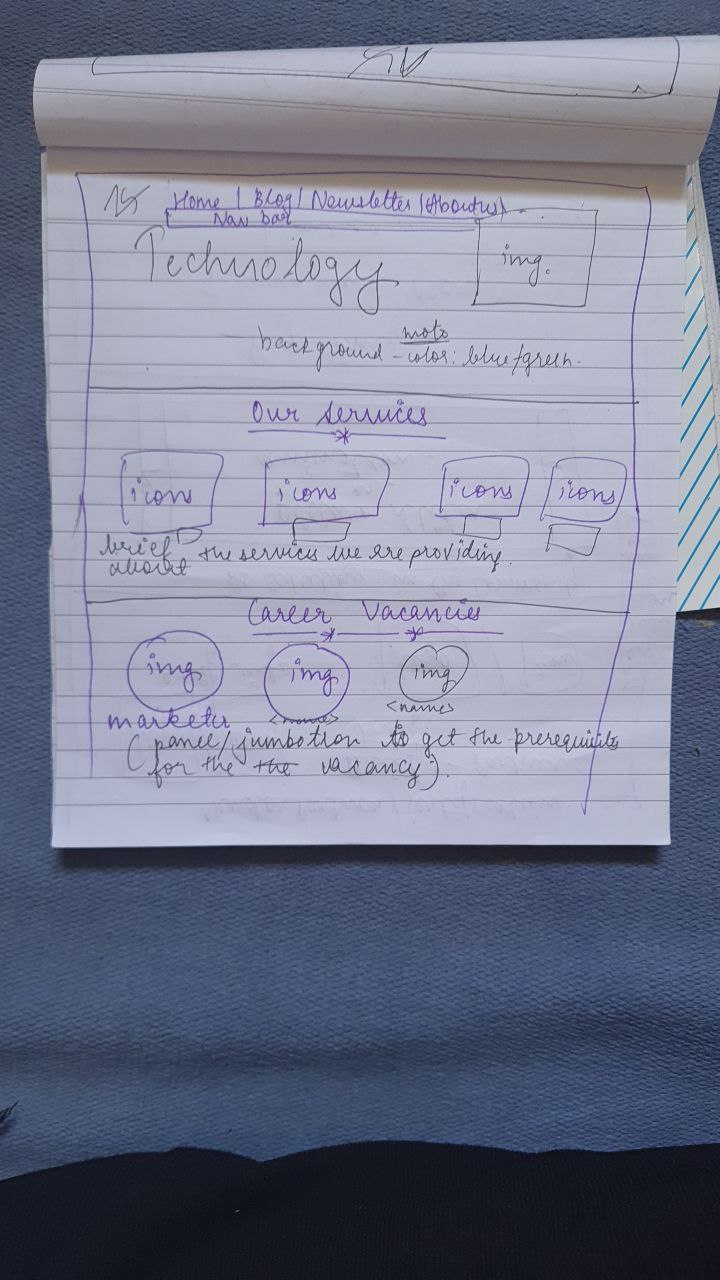 Home | Blog | Newsletter | (About us)
Nav bar
Technology
img.
moto
background - color: blue/green.
Our Services
icons icons icons icons
brief about the services we are providing.
Career Vacancies
img img img
marketer <name> <names>
(panel/jumbotron to get the prerequisits
for the the vacancy).